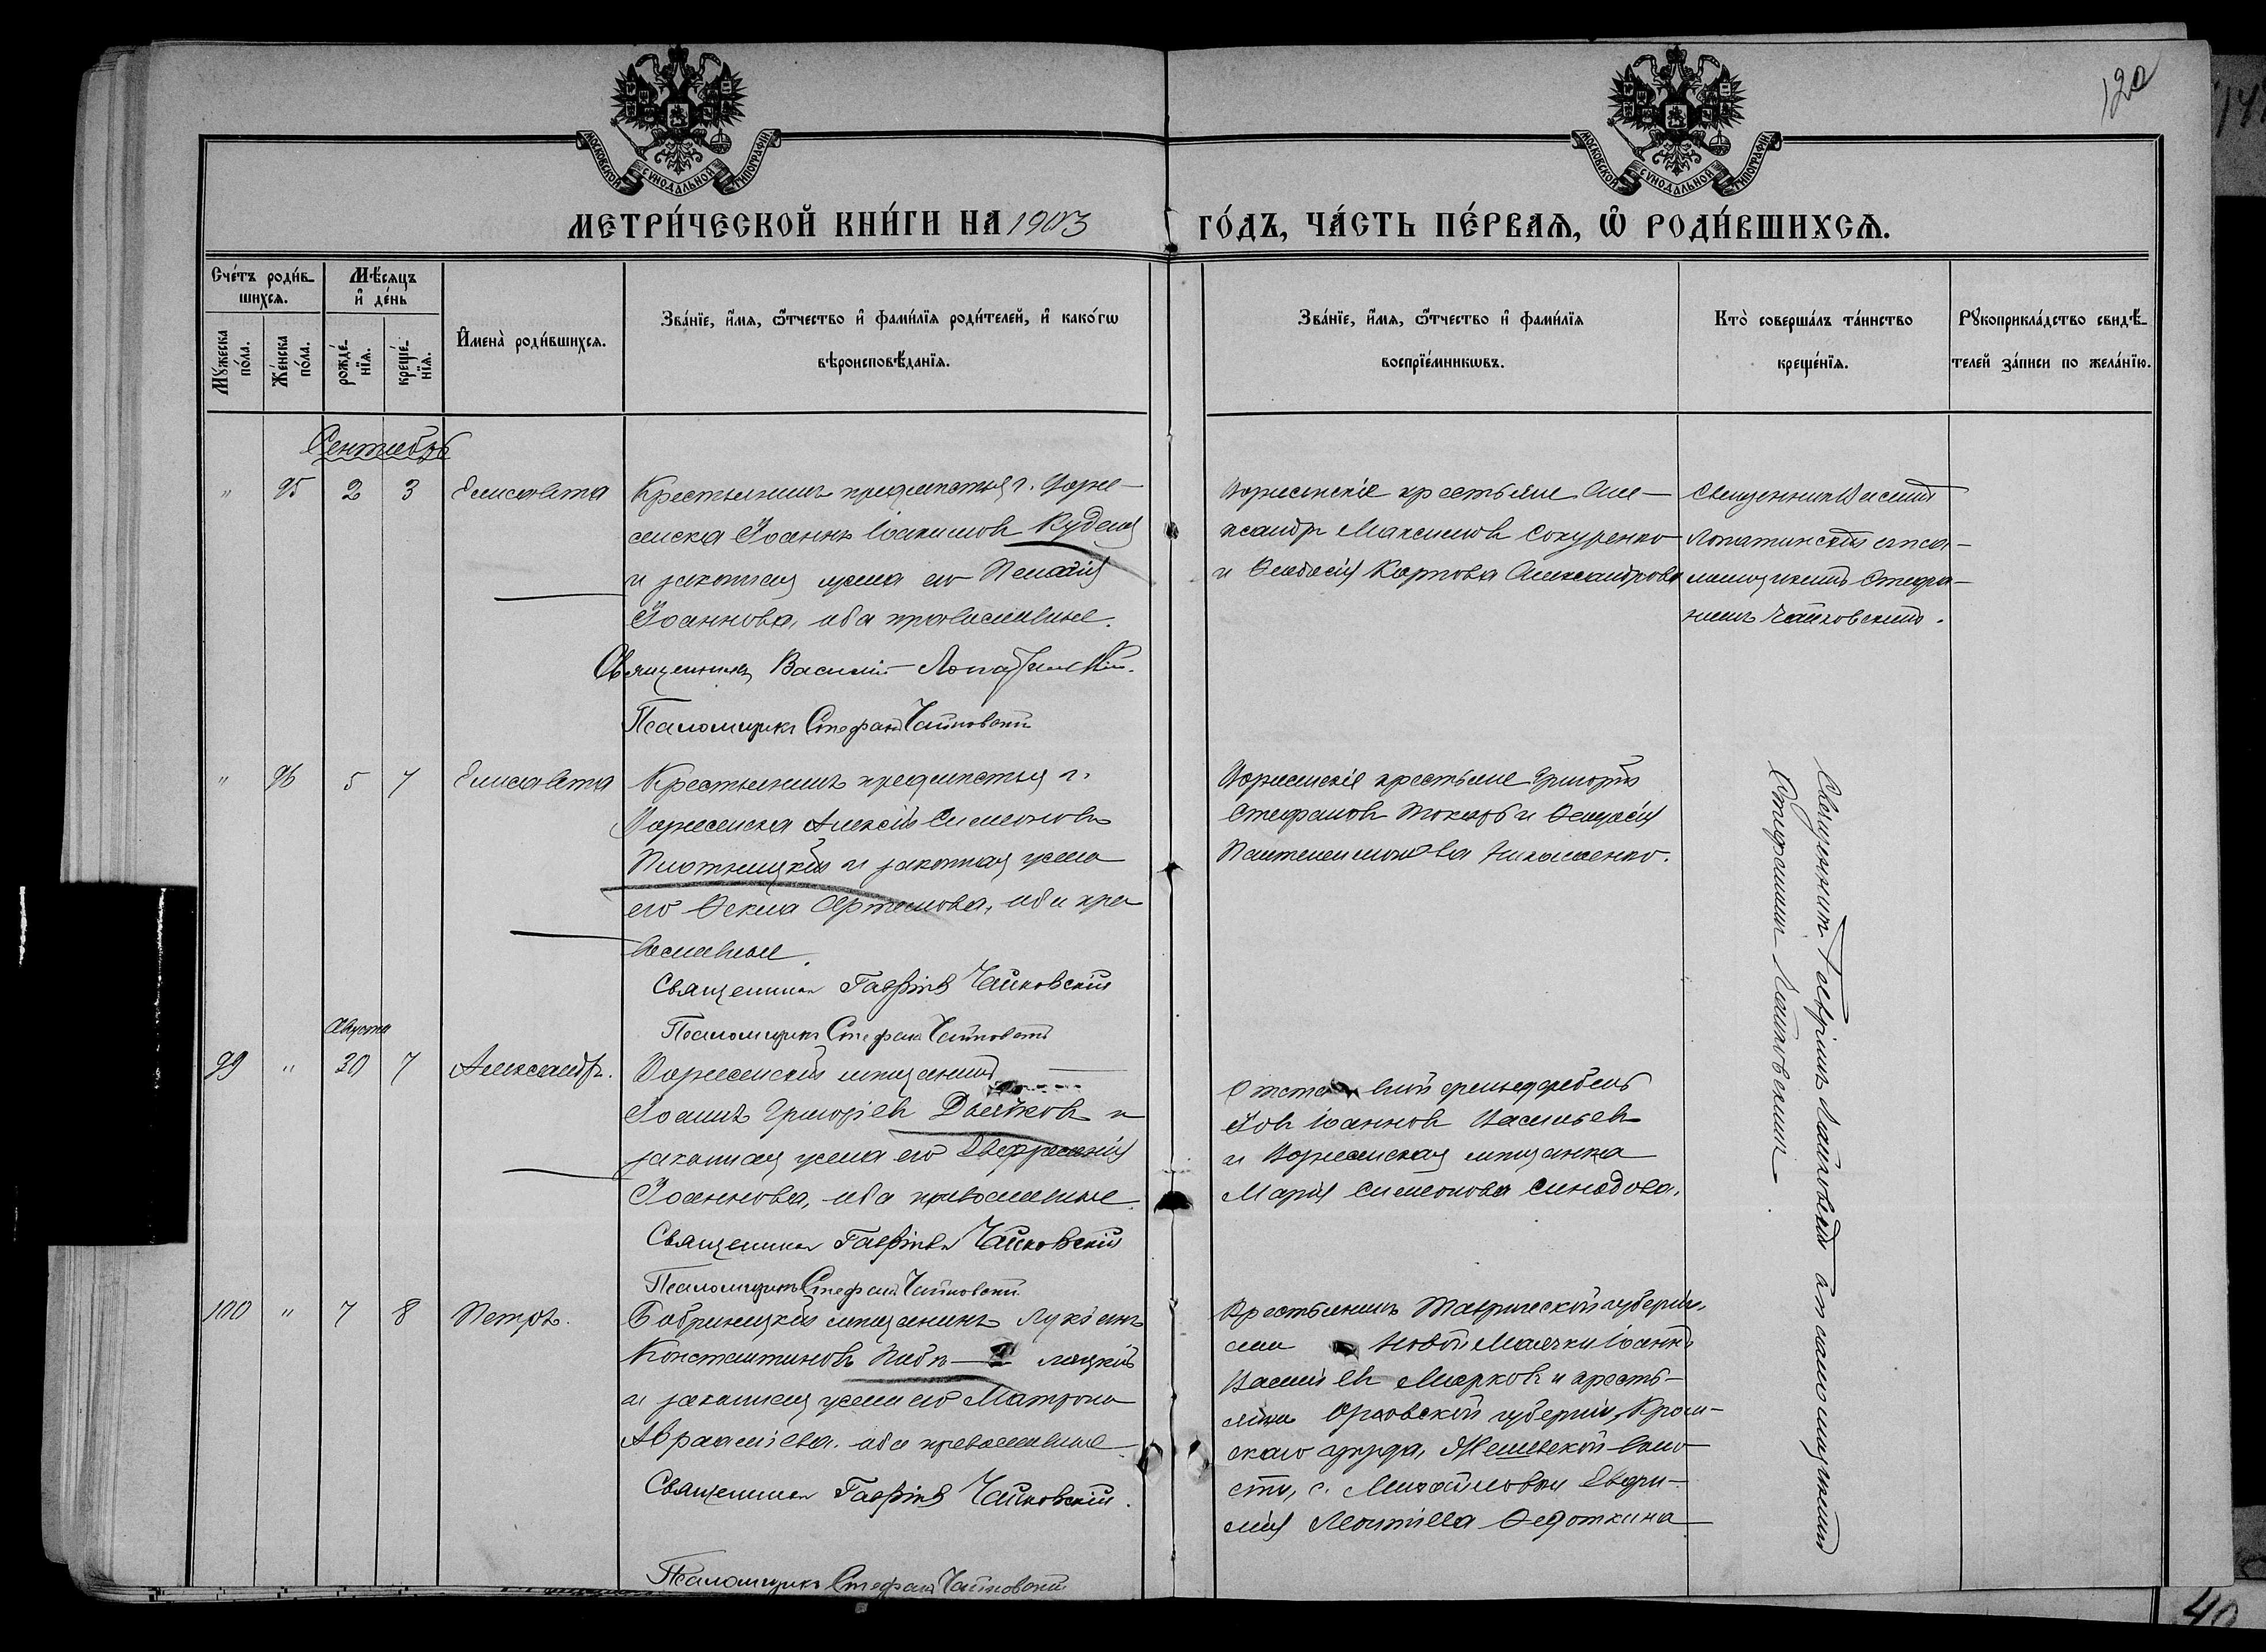 120
МОСКОВСКОЙ СѴНОДАЛЬНОЙ ТИПОГРАФІИ
МОСКОВСКОЙ СѴНОДАЛЬНОЙ ТИПОГРАФІИ
МЕТРИ́ЧЕСКОЙ КНИ́ГИ НА 1903 ГО́ДЪ, ЧА́СТЬ ПЕ́РВАѦ, Ѽ РОДИ́ВШИХСѦ.
Сче́тъ роди́в-
шихсѧ.
Мꙋ́жеска
по́ла.
Же́нска
по́ла.
Мѣ́сѧцъ
и҆ де́нь
рожде́-
нїѧ.
креще́-
нїѧ.
И҆мена̀ роди́вшихсѧ.
Зва́нїе, и҆́мѧ, ѻ҆́тчество и҆ фами́лїѧ роди́телей, и҆ како́гѡ
вѣроисповѣ́данїѧ.
Зва́нїе, и҆́мѧ, ѻ҆́тчество и҆ фами́лїѧ
воспрїе́мникѡвъ.
Кто̀ соверша́лъ та́инство
креще́нїѧ.
Рꙋкоприкла́дство свидѣ́-
телей за́писи по жела́нїю.
Сентябрь
" 95 2 3 Елисавета
Крестьянинъ предместья г. Возне-
сенска Іоаннъ Іоакимовъ
и законная жена его Пелагія
Іоаннова, оба православные.
Священникъ Василій Лопатинскій.
Псаломщикъ Стефанъ Чайковскій
Вознесенскіе крестьяне Але-
ксандръ Максимовъ Сокуренко
и Карпова Александрова
Священникъ Василій
Лопатинскій съ псал-
мощикомъ Стефа-
номъ Чайковскимъ.
" 96 5 7 Елисавета
Крестьянинъ предместья г.
Вознесенска Алексій Симеоновъ
Плотницкій и законная жена
его Ѳекла Артемова, оба пра-
вославные.
Священникъ Гавріилъ Чайковскій
Псаломщикъ Стефанъ Чайковскій
Вознесенскіе крестьяне Григорій
Стефановъ Токарь и
Пантелеимонова Николаенко.
Священникъ Гавріилъ Чайковскій съ псаломщикомъ
Стефаномъ Чайковскимъ
Августа
99 " 30 7 Александръ.
Вознесенскій мѣщанинъ
Іоаннъ Григоріевъ и
законная жена его Евфросинія
Іоаннова, оба православные.
Священникъ Гавріилъ Чайковскій
Псаломщикъ Стефанъ Чайковскій
Отставной фельдфебель
Іовъ Іоанновъ Васильевъ
и Вознесенская мѣщанка
Марія Симеонова Синадова.
100 " 7 8 Петръ.
Бобринецкій мѣщанинъ Лукіанъ
Константиновъ
и законная жена его Матрона
Авраамієва. оба православные
Священникъ Гавріилъ Чайковскій.
Псаломщикъ Стефанъ Чайковскій
Крестьянинъ Таврической губерніи,
Новой Маячки Іоаннъ
Василіевъ Марковъ и кресть-
янка Орловской губерніи, Кром-
скаго уѣзда, воло-
сти, с. Михайловки Евфи-
мія Леонтіева Ѳедоткина
40